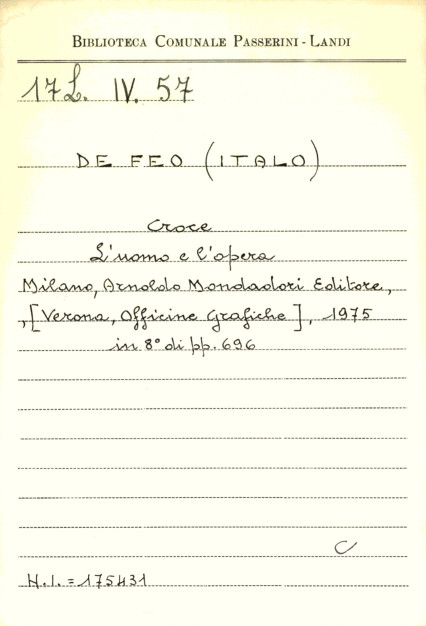 BIBLIOTECA COMUNALE PASSERINI - LANDI
17L. IV. 57
DE FEO (ITALO)
Croce
L'uomo e l'opera
Milano, Arnoldo Mondadori Editore,
,[Verona, Officine Grafiche], 1975
in 8° di pp. 696
C
N.I. = 175431